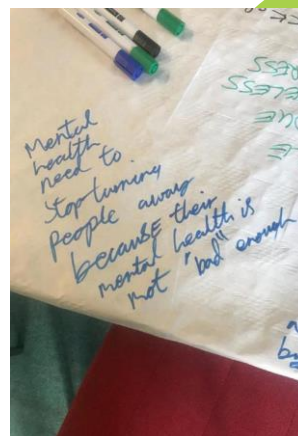 Mental
health
need to
stop turning
people away
because their
mental health is
not "bad" enough
RESS
ELESS